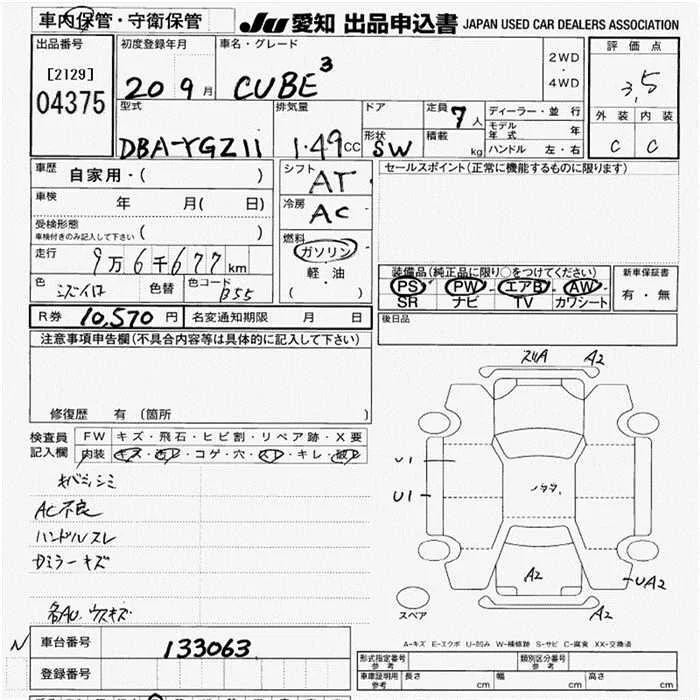 車内保管・守衛保管
JU 愛知 出品申込書 JAPAN USED CAR DEALERS ASSOCIATION
出品番号
[2129]
04375
初度登録年月
20 9 月
車名・グレード
CUBE³
2WD
・
4WD
評価点
3.5
外装 内装
C C
型式
DBA-YGZ11
排気量
1.49 CC
ドア
形状
SW
定員 7 人
積載 kg
ディーラー・並行
モデル年式 年
ハンドル 左・右
車歴
自家用・( )
車検 年 月( 日)
受検形態
車検付きのみ記入して下さい ( )
走行 9万6千677 km
色 色替 色コード B55
シフト AT
冷房 AC
燃料
ガソリン
軽・油
( )
セールスポイント(正常に機能するものに限ります)
装備品(純正品に限り○をつけてください)
PS PW エアB AW
SR ナビ TV カワシート
新車保証書
有・無
R券 10,570 円 名変通知期限 月 日
後日品
注意事項申告欄(不具合内容等は具体的に記入して下さい)
修復歴 有(箇所 )
検査員記入欄
FW キズ・飛石・ヒビ割・リペア跡・X要
内装 キズ・コゲ・穴・スレ・キレ・破レ
AC不良
ハンドルスレ
Dミラーキズ
各AU.ウスキズ
A2
U1
U1
A2
UA2
A2
スペア
A-キズ E-エクボ U-凹み W-補修跡 S-サビ C-腐食 XX-交換済
N
車台番号 133063
登録番号
形式指定番号 参考
類別区分番号 参考
車庫証明用 参考 長さ cm 幅 cm 高さ cm